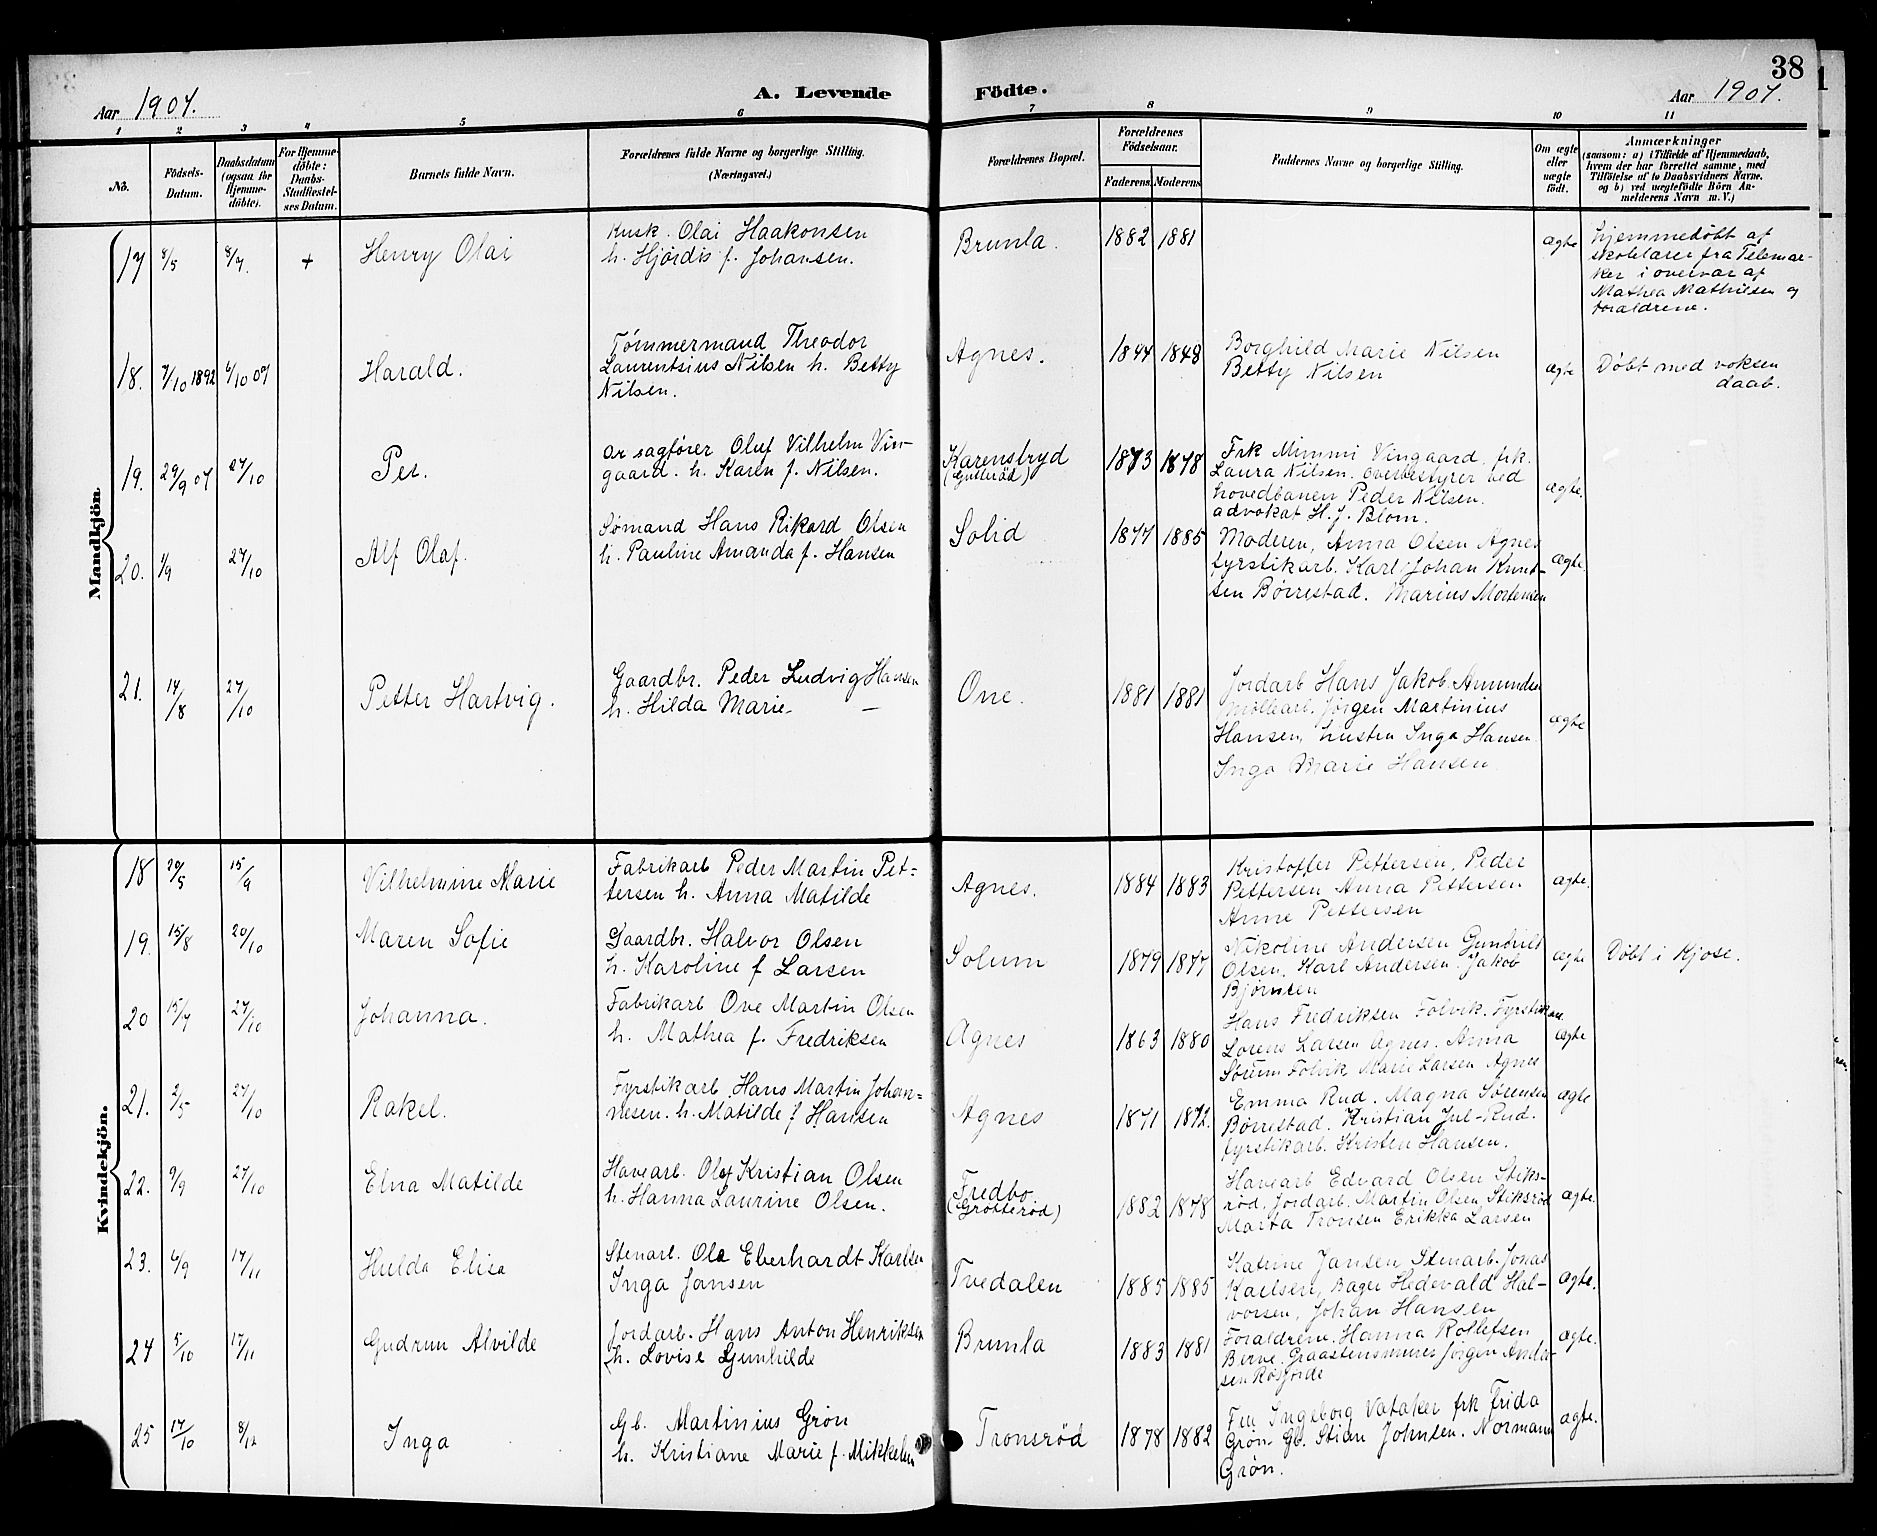 38
Aar 1907. A. Levende Födte. Aar 1907.
1 2 3 4 5 6 7 8 9 10 11
No. Födsels-Datum. Daabsdatum (ogsaa for Hjemme-döbte). For Hjemme-döbte: Daabs-Stadfæstel-ses Datum. Barnets fulde Navn. Forældrenes fulde Navne og borgerlige Stilling. (Næringsvei.) Forældrenes Bopæl. Forældrenes Födselsaar. Faderens. Moderens. Faddernes Navne og borgerlige Stilling. Om ægte eller uægte födt. Anmærkninger
(saasom: a) i Tilfælde af Hjemmedaab,
hvem der har forrettet samme, med
Tilföielse af to Daabsvidners Navne.
og b) ved uægtefödte Börn An-
melderens Navn m. V.)
Mandkjön.
17 8/5 8/7. + Henry Olai
Kusk. Olai Haakonsen
h. Hjørdis f. Johansen.
Brunla. 1882 1881 ægte
hjemmedøbt af
skolelærer fra Telemar-
ker i overvær af
Mathea Mathilsen og
foraldrene.
18. 7/10 1892 6/10 07 Harald.
Tømmermand Theodor
Laurentsius Nilsen h. Betty
Nilsen.
Agnes. 1844 1848
Borghild Marie Nilsen
Betty Nilsen
ægte
Døbt med voksen
daab.
19. 29/9 07 27/10 Per.
or sagfører Oluf Vilhelm Vin-
gaard. h. Karen f. Nilsen.
Karensbryd
1873 1878
Frk Mimmi Vingaard. frk.
Laura Nilsen. overbestyrer ved
hovedbanen Peder Nilsen.
advokat H. J. Blom.
ægte.
20. 1/9 27/10 Alf Olaf.
Sømand Hans Rikard Olsen
h. Pauline Amanda f. Hansen
Solid 1877 1885
Moderen, Anna Olsen Agnes
fyrstikarb. Karl Johan Knut-
sen Børrestad. Marius Mortensen
ægte.
21. 14/8 27/10 Petter Hartvig.
Gaardbr. Peder Ludvig Hansen
h. Hilda Marie —
One. 1881 1881
Jordarb Hans Jakob Amundsen
møllearb. Jørgen Martinius
Hansen, hustru Inga Hansen.
Inga Marie Hansen.
ægte
Kvindekjön.
18 20/5 15/9 Vilhelmine Marie
Fabrikarb Peder Martin Pet-
tersen h. Anna Matilde
Agnes. 1884 1883
Kristoffer Pettersen, Peder
Pettersen Anna Pettersen
Anne Pettersen
ægte.
19. 15/8 20/10 Maren Sofie
Gaardbr. Halvor Olsen
h. Karoline f Larsen
Solum 1879 1877
Nikoline Andersen Gunhild
Olsen. Karl Andersen. Jakob
Bjørnsen
ægte Døbt i Kjose.
20 15/7 27/10 Johanna.
Fabrikarb Ove Martin Olsen
h. Mathea f. Fredriksen
Agnes 1863 1880
Hans Fredriksen Folvik. Fyrstikar.
Lorens Larsen Agnes. Anna
Sørum Folvik Marie Larsen Agnes
ægte
21. 2/5 27/10 Rakel.
Fyrstikarb Hans Martin Johan-
nesen. h. Matilde f Hansen
Agnes 1871 1872.
Emma Rud. Magna Sørensen
Børrestad. Kristian Jul-Rud.
fyrstikarb. Kristen Hansen.
ægte
22. 9/9 27/10 Elna Matilde
Havearb. Olaf Kristian Olsen
h. Hanna Laurine Olsen.
Fredbo.
(Grotterød)
1882 1878
Havearb Edvard Olsen Stiks-
rød. Jordarb. Martin Olsen Stiksrød
Marta Tronsen Erikka Larsen
ægte.
23. 6/9 17/11 Hulda Elise
Stenarb. Ole Eberhardt Karlsen
Inga Jansen
Tvedalen 1885 1885
Katrine Jansen Stenarb. Jonas
Karlsen, Bager Hedevald Hal-
vorsen, Johan Hansen
ægte.
24 5/10 17/11 Gudrun Alvilde
Jordarb. Hans Anton Henriksen
h. Lovise Gunhilde
Brunla 1883 1881
Foraldrene. Hanna Rollefsen
Berve. Graastensmurer Jørgen Ander-
sen Rosfjorde
ægte.
25 17/10 8/12 Inga
Gb. Martinius Grøn
h. Kristiane Marie f. Mikkelsen
Tronsrød 1878 1882
Fru Ingeborg Vataker frk Frida
Grøn. Gb. Stian Johnsen. Normann
Grøn.
ægte.